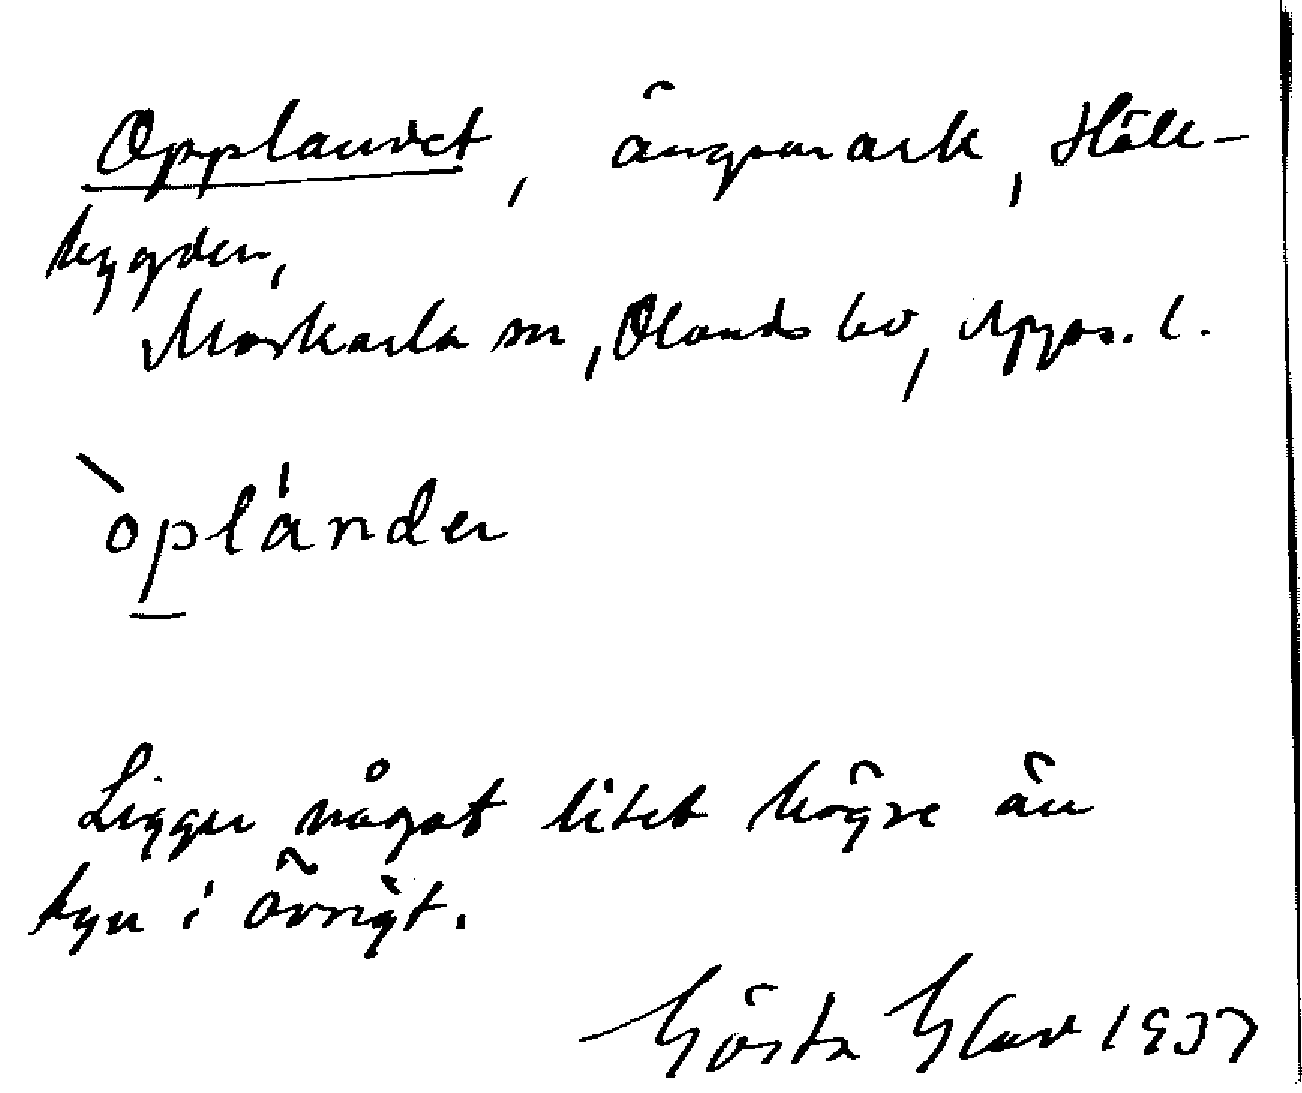 Opplandet, ängsmark, Häll-
bygden,
Morkarla sn, Olands hd, Upps. l.
òpländen
Ligger något litet högre än
byn i övrigt.
Gösta 1937